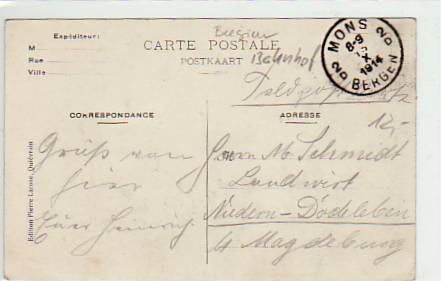 Expéditeur:
M
Rue
Ville
CARTE POSTALE
POSTKAART
Belgien
Bahnhof
MONS
8-9
X
1914
BERGEN
2D
2D
Feldpost
12,-
CORRESPONDANCE
ADRESSE
Gruß von
hier
Euer Heinrich.
Herrn M. Schmidt
Landwirt
Niedern-Dodeleben
b/ Magdeburg
Edition Pierre Lacosse, Quiévrain